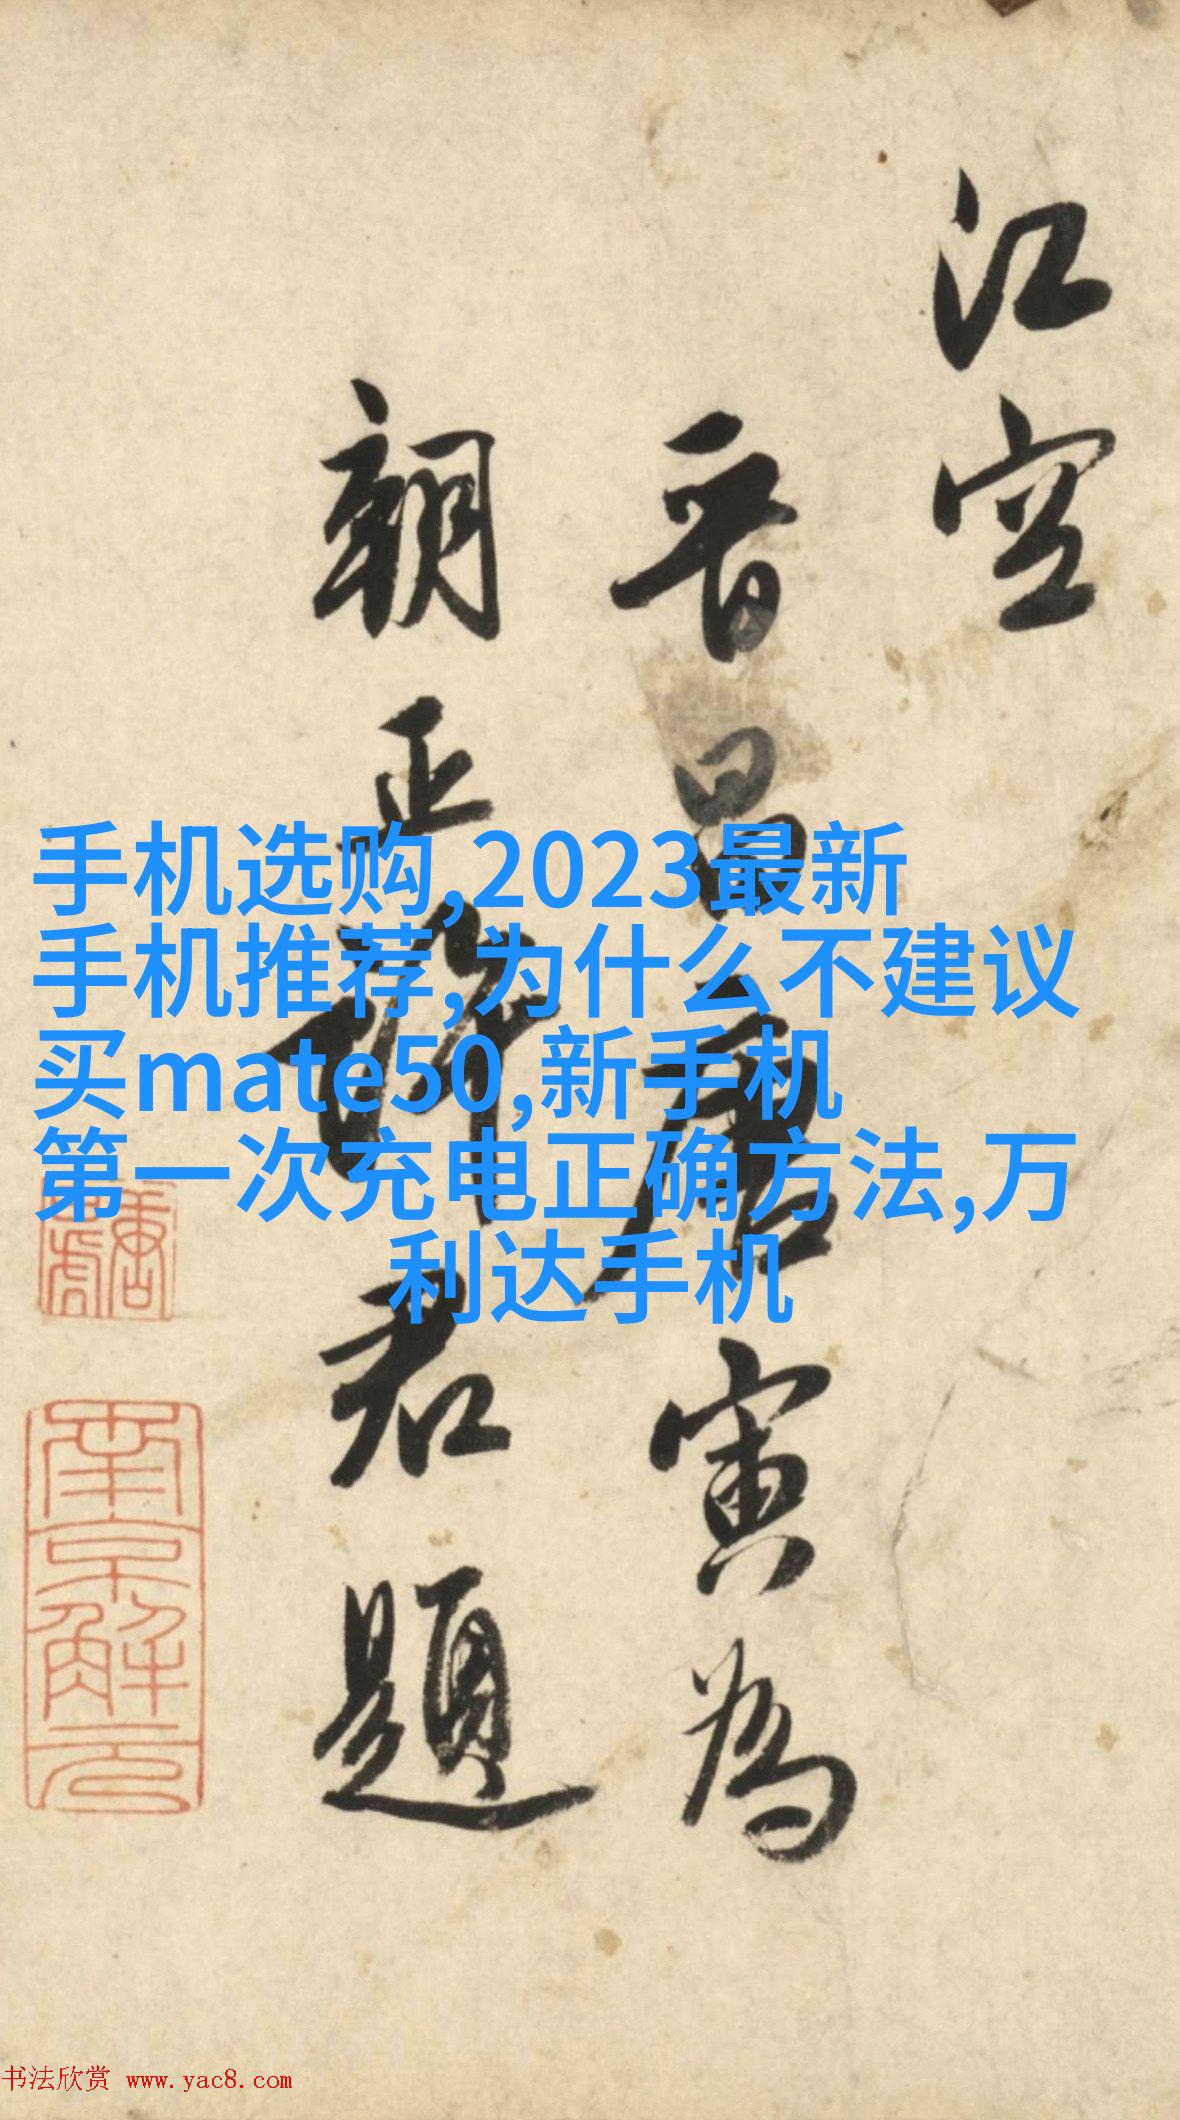 江空
晉昌唐寅為
朝正君題
手机选购,2023最新
手机推荐,为什么不建议
买mate50,新手机
第一次充电正确方法,万
利达手机
南京解元
书法欣赏 www.yac8.com